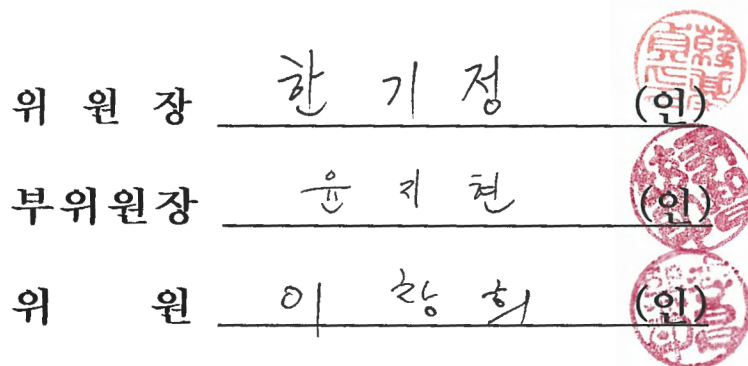 위 원 장 한 기 정 (인)
부위원장 윤 지 현 (인)
위 원 이 창 희 (인)